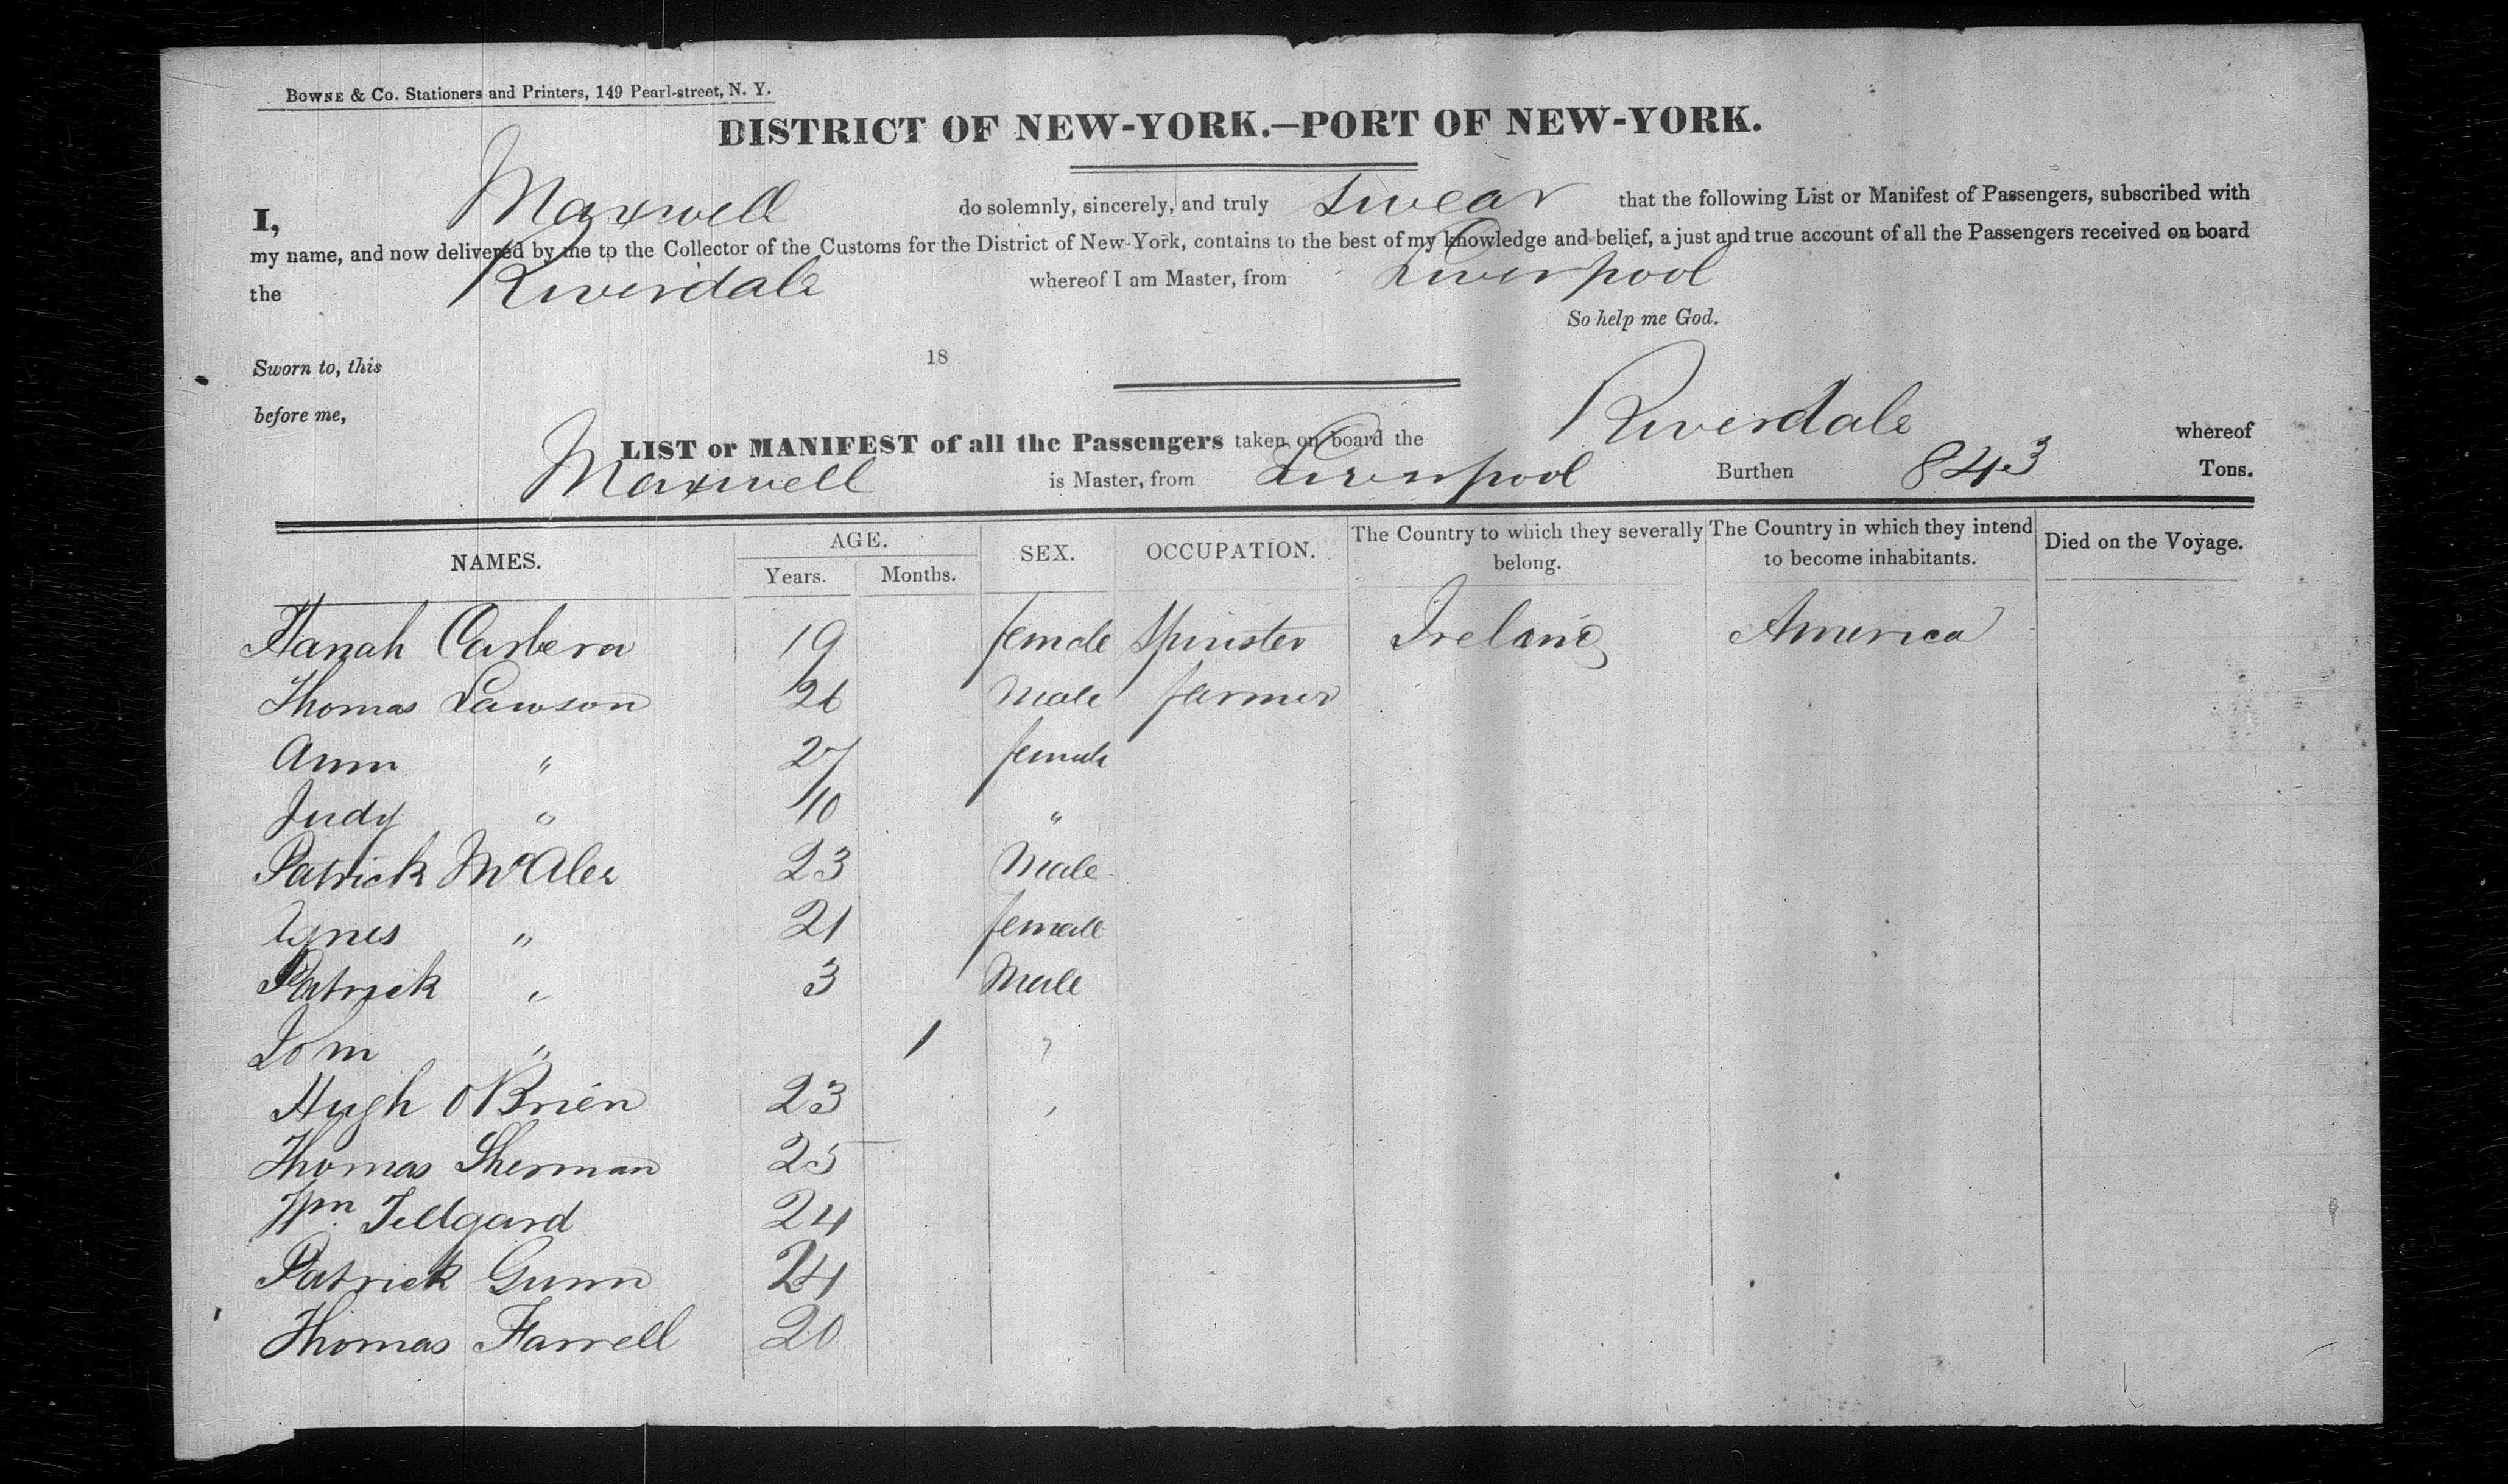 BOWNE & CO. Stationers and Printers, 149 Pearl-street, N. Y.
DISTRICT OF NEW-YORK.—PORT OF NEW-YORK.
I, Maxwell do solemnly, sincerely, and truly swear that the following List or Manifest of Passengers, subscribed with
my name, and now delivered by me to the Collector of the Customs for the District of New-York, contains to the best of my knowledge and belief, a just and true account of all the Passengers received on board
the Riverdale whereof I am Master, from Liverpool
So help me God.
Sworn to, this 18
before me,
LIST or MANIFEST of all the Passengers taken on board the Riverdale whereof
Maxwell is Master, from Liverpool Burthen 843 Tons.
NAMES. AGE. SEX. OCCUPATION. The Country to which they severally belong. The Country in which they intend to become inhabitants. Died on the Voyage.
Years. Months.
Hanah Carbera 19 female Spinster Ireland America
Thomas Lawson 26 Male farmer
Ann " 27 female
Judy " 10 "
Patrick McAlee 23 Male
Agnes " 21 female
Patrick " 3 Male
Tom " 1 "
Hugh OBrien 23 "
Thomas Sherman 25
Wm Tellgard 24
Patrick Gunn 24
Thomas Farrell 20